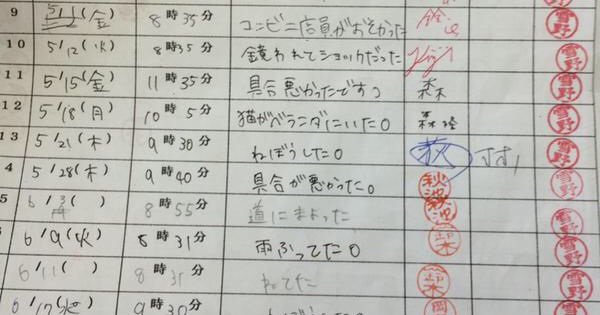 9 5/1 (金) 8時35分 コンビニ店員がおそかった 雪野
10 5/12(火) 8時35分 鏡われてショックだった 雪野
11 5/15(金) 11時35分 具合悪かったですっ 森 雪野
12 5/18(月) 10時5分 猫がベランダにいた。 森 雪野
13 5/21(木) 9時30分 ねぼうした。 萩 雪野
4 5/28(木) 9時40分 具合が悪かった。 秋波 雪野
5 6/3( 8時55分 道にまよった 雪野
6 6/9(火) 8時31分 雨ふってた。 鈴木 雪野
6/11( ) 8時31分 ねてた 鈴木 雪野
6/17(水) 9時30分 雪野